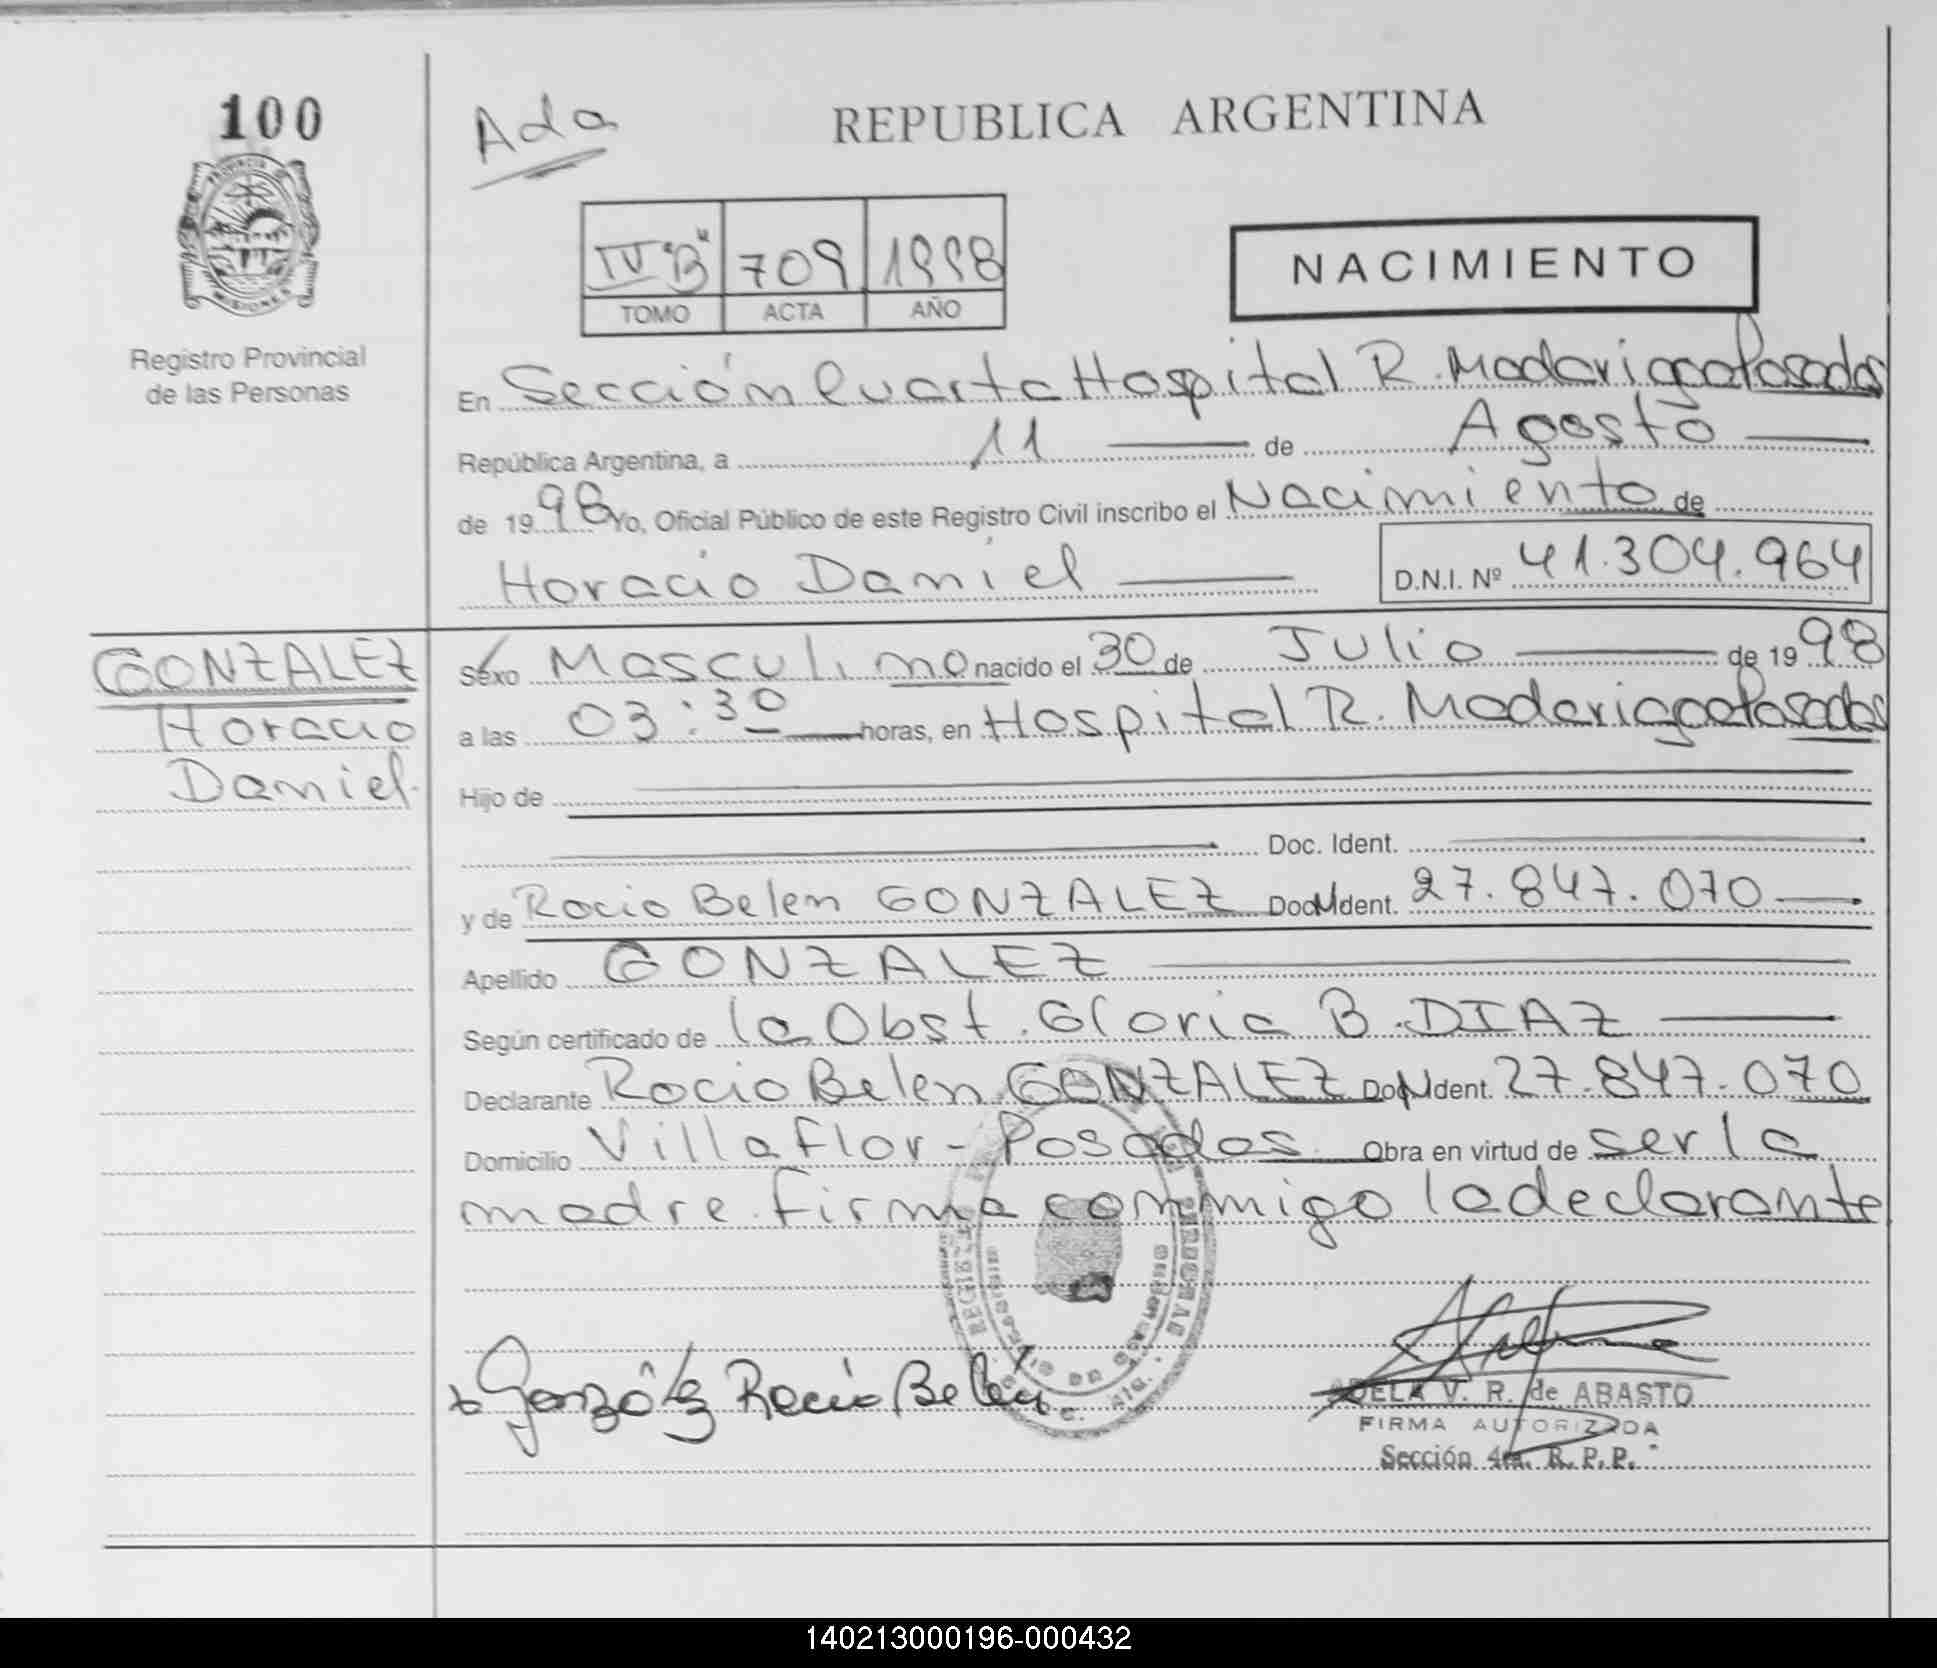 100
Ada
REPUBLICA ARGENTINA
PROVINCIA DE
MISIONES
Registro Provincial
de las Personas
IV "B" 709 1998
TOMO ACTA AÑO
NACIMIENTO
En Sección Cuarta Hospital R. Madariaga Posadas
República Argentina, a 11 de Agosto
de 1998 Yo, Oficial Público de este Registro Civil inscribo el Nacimiento de
Horacio Daniel D.N.I. Nº 41.304.964
GONZALEZ
Horacio
Daniel.
Sexo Masculino nacido el 30 de Julio de 1998
a las 03:30 horas, en Hospital R. Madariaga Posadas
Hijo de
Doc. Ident.
y de Rocio Belen GONZALEZ Doc. Ident. 27.847.070
Apellido GONZALEZ
Según certificado de la Obst. Gloria B. DIAZ
Declarante Rocio Belen GONZALEZ Doc. Ident. 27.847.070
Domicilio Villa Flor - Posadas. Obra en virtud de ser la
madre. firma conmigo la declarante
González Rocío Belén
ADELA V. R. de ABASTO
FIRMA AUTORIZADA
Sección 4ta. R. P. P.
140213000196-000432